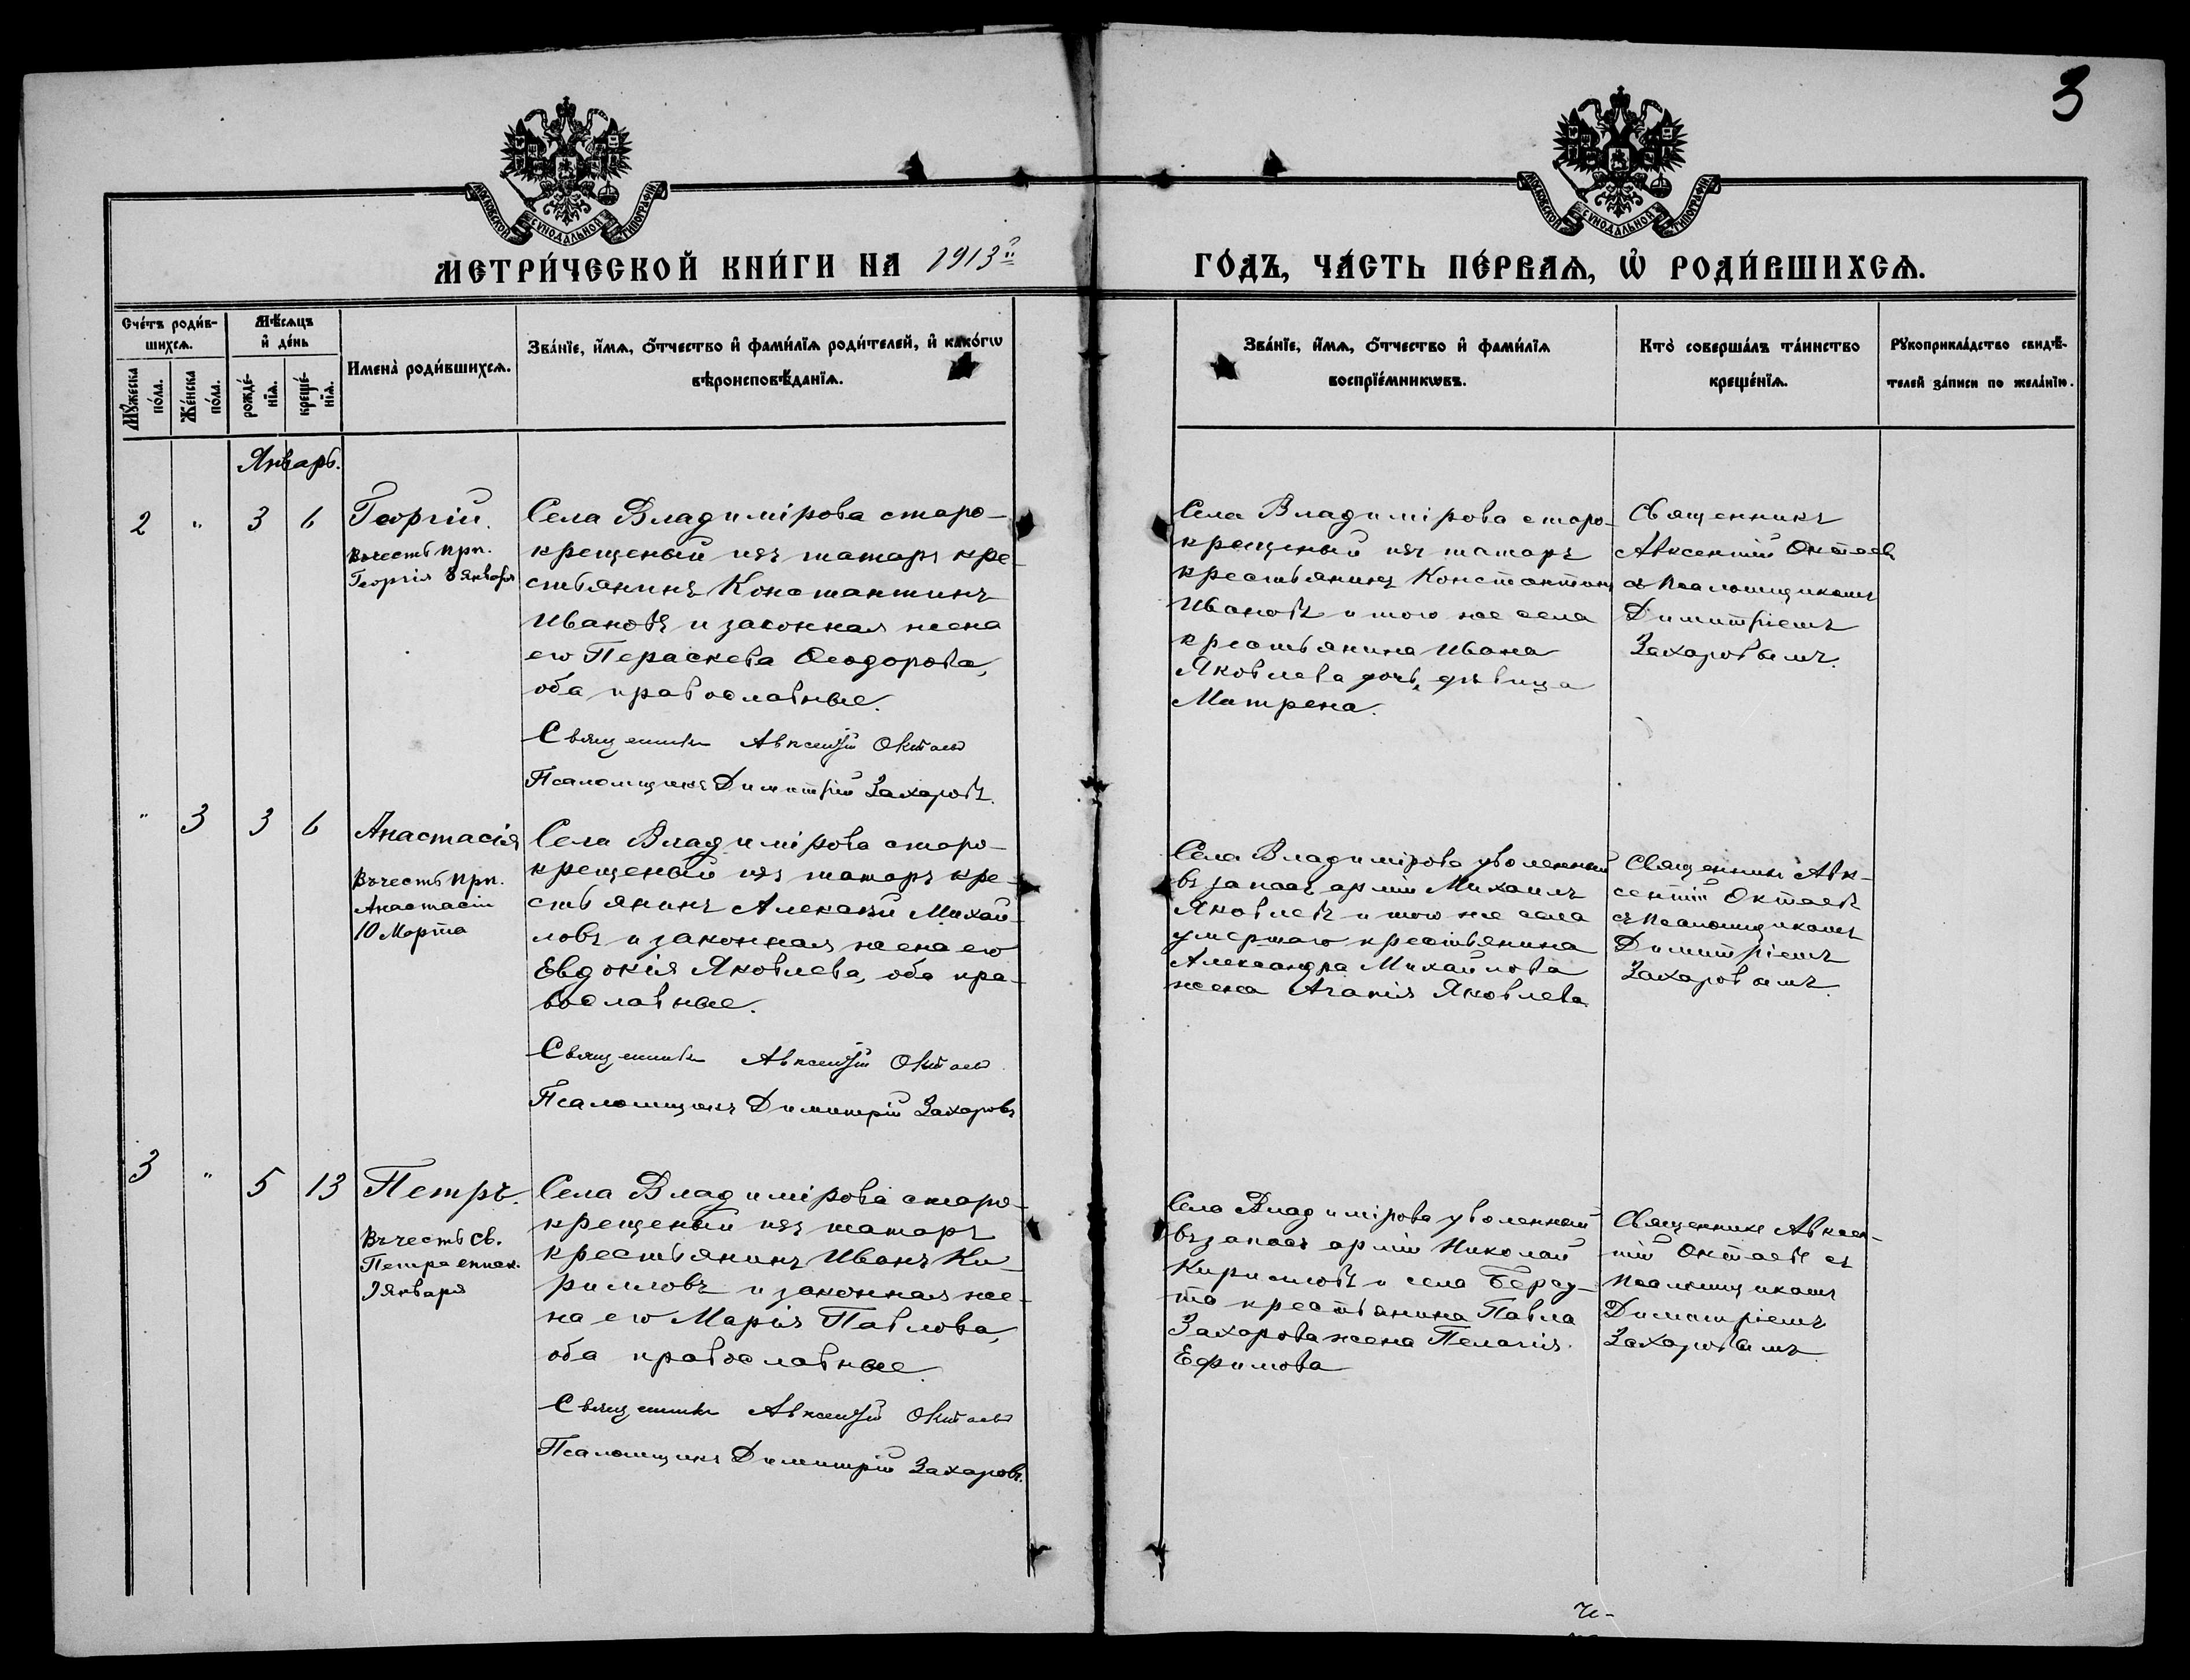 3
МОСКОВСКОЙ СѴНОДАЛЬНОЙ ТИПОГРАФІИ
МОСКОВСКОЙ СѴНОДАЛЬНОЙ ТИПОГРАФІИ
МЕТРИ́ЧЕСКОЙ КНИ́ГИ НА 1913й
ГО́ДЪ, ЧА́СТЬ ПЕ́РВАѦ, Ѽ РОДИ́ВШИХСѦ.
Сче́тъ роди́в-
шихсѧ.
Мꙋжеска
по́ла.
Же́нска
по́ла.
Мѣ́сѧцъ
и҆ де́нь
рожде́-
нїѧ.
креще́-
нїѧ.
Имена̀ роди́вшихсѧ.
Зва́нїе, и҆́мѧ, ѻ҆́тчество и҆ фами́лїѧ роди́телей, и҆ како́гѡ
вѣроисповѣ́данїѧ.
Зва́нїе, и҆́мѧ, ѻ҆́тчество и҆ фами́лїѧ
воспрїе́мникѡвъ.
Кто̀ соверша́лъ та́инство
креще́нїѧ.
Рꙋкоприкла́дство свидѣ́-
телей за́писи по жела́нїю.
Январь.
2 " 3 6
Георгій.
Въ честь прп.
Георгія 8 января
Села Владимірова старо-
крещеный изъ татаръ кре-
стьянинъ Константинъ
Ивановъ и законная жена
его Параскева Ѳеодорова,
оба православные.
Священникъ Авксентій Октаевъ
Псаломщикъ Димитрій Захаровъ.
Села Владимірова старо-
крещеный изъ татаръ
крестьянинъ Константинъ
Ивановъ и того же села
крестьянина Ивана
Яковлева дочь, дѣвица
Матрена.
Священникъ
Авксентій Октаевъ
съ псаломщикомъ
Димитріемъ
Захаровымъ.
" 3 3 6
Анастасія
Въ честь прп.
Анастасіи
10 Марта
Села Владимірова старо-
крещеный изъ татаръ кре-
стьянинъ Алексѣй Михай-
ловъ и законная жена его
Евдокія Яковлева, оба пра-
вославные.
Священникъ Авксентій Октаевъ
Псаломщикъ Димитрій Захаровъ
Села Владимірова уволенный
въ запасъ арміи Михаилъ
Яковлевъ и того же села
умершаго крестьянина
Александра Михайлова
жена Агапія Яковлева
Священникъ Авк-
сентій Октаевъ
съ псаломщикомъ
Димитріемъ
Захаровымъ.
3 " 5 13
Петръ.
Въ честь св.
Петра еписк.
9 января
Села Владимірова старо-
крещеный изъ татаръ
крестьянинъ Иванъ Ки-
рилловъ и законная же-
на его Марія Павлова,
оба православные.
Священникъ Авксентій Октаевъ
Псаломщикъ Димитрій Захаровъ.
Села Владимірова уволенный
въ запасъ арміи Николай
Кирилловъ и села
крестьянина Павла
Захарова жена Пелагія
Ефимова
Священникъ Авксен-
тій Октаевъ съ
псаломщикомъ
Димитріемъ
Захаровымъ.